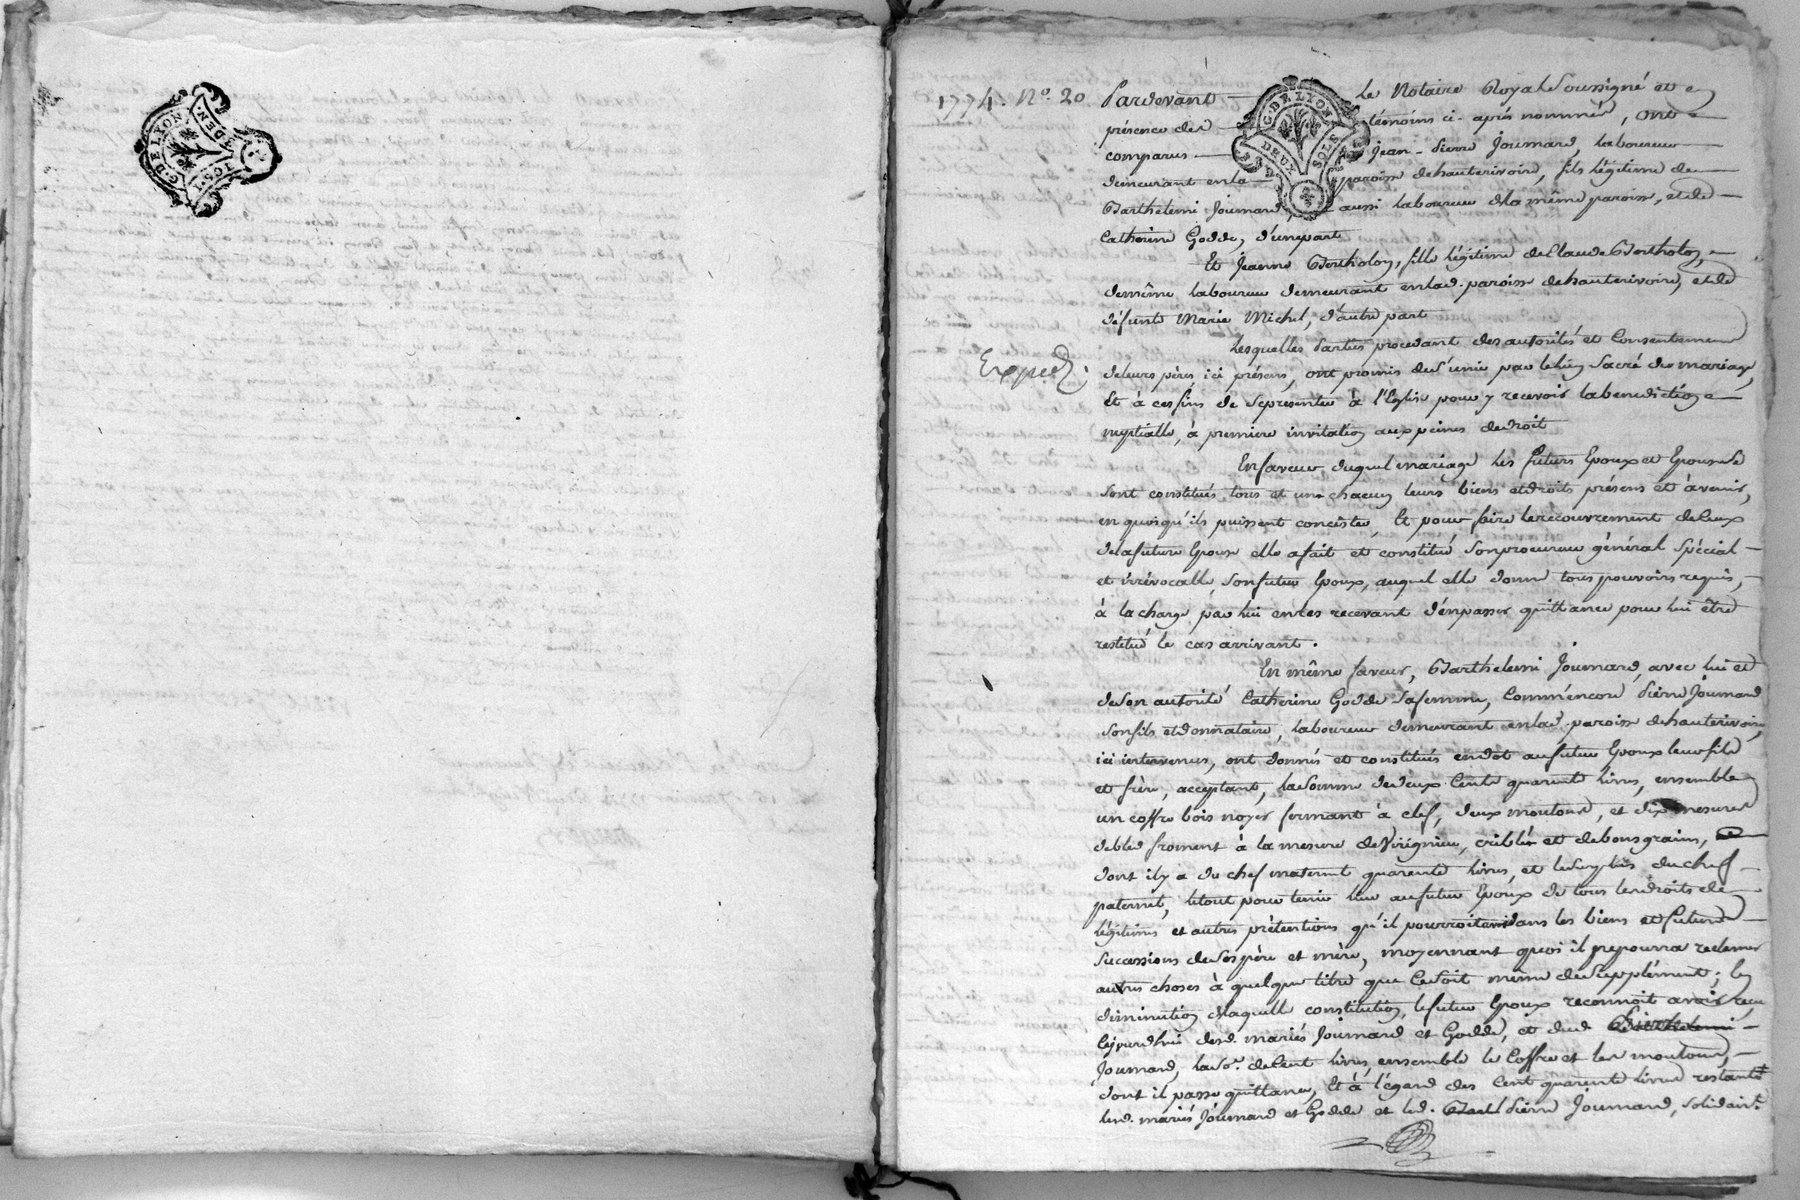 G. DE LYON
DEN.
1774. N.º 20
Exped.
G. DE LYON
DEUX SOLS
Pardevant le Notaire Royal Soussigné et e
présence des témoins ci-après nommés, ont
comparus Jean-Pierre Joumard, laboureur
demeurant en la paroisse de hauterivoire, fils légitime de
Barthelemi Joumard, aussi laboureur dela même paroisse, et de
Catherine Godde, d'une part
Et Jeanne Bertholon, fille légitime de Claude Bertholon,
de même laboureur demeurant en lad. paroisse de hauterivoire, et de
défunte Marie Michel, d'autre part
Lesquelles Parties procedant des autorités et Consentement
de leurs pères, ici présens, ont promis de S'unir par le lien Sacré du mariage,
Et à ces fins de Se presenter à l'Eglise pour y recevoir la benediction
nuptialle, à premiere invitation aux peines de droit
En faveur duquel mariage les futurs Epoux et Epouse Se
sont constitués tous et un chacun leurs biens et droits présens et à venir,
en quoi qu'ils puissent concister, Et pour faire le recouvrement de Ceux
de la future Epouse elle a fait et constitué Son procureur général Spécial
et irrévocable, Son futur Epoux, auquel elle donne tous pouvoirs requis,
à la charge par lui en les recevant d'en passer quittance pour lui être
restitué le cas arrivant.
En même faveur, Barthelemi Joumard, avec lui et
de Son autorité Catherine Godde Sa femme, Comm'encore Pierre Joumard
Son fils et donnataire, laboureur demeurant en lad. paroisse de hauterivoire,
ici intervenus, ont donnés et constitués en dot au futur Epoux leur fils
et frère, acceptant, la Somme de deux Cents quarente livres, ensemble
un coffre bois noyer fermant à clef, deux moutons, et dix mesures
de bled froment à la mesure de Virignieu, criblés et de bons grains,
dont il y a du chef maternel quarente livres, et le Surplus du chef
paternel, le tout pour tenir lieu au futur Epoux de tous les droits de
légitimes et autres prétentions qu'il pourroit avoir dans les biens et futures
Successions de Ses père et mère, moyennant quoi il ne pourra reclamer
autres choses à quelque titre que Ce Soit même de Supplément; En
diminution de laquelle constitution, le futur Epoux reconnoît avoir reçu
Cejourdhui desd. mariés Joumard et Godde, et dud. Barthelemi
Joumard, la So. de Cent livres, ensemble le Coffre et les moutons,
dont il passe quittance, Et à l'égard des Cent quarente livres restantes
lesd. mariés Joumard et Godde et led. Pierre Joumard, Solidairt.